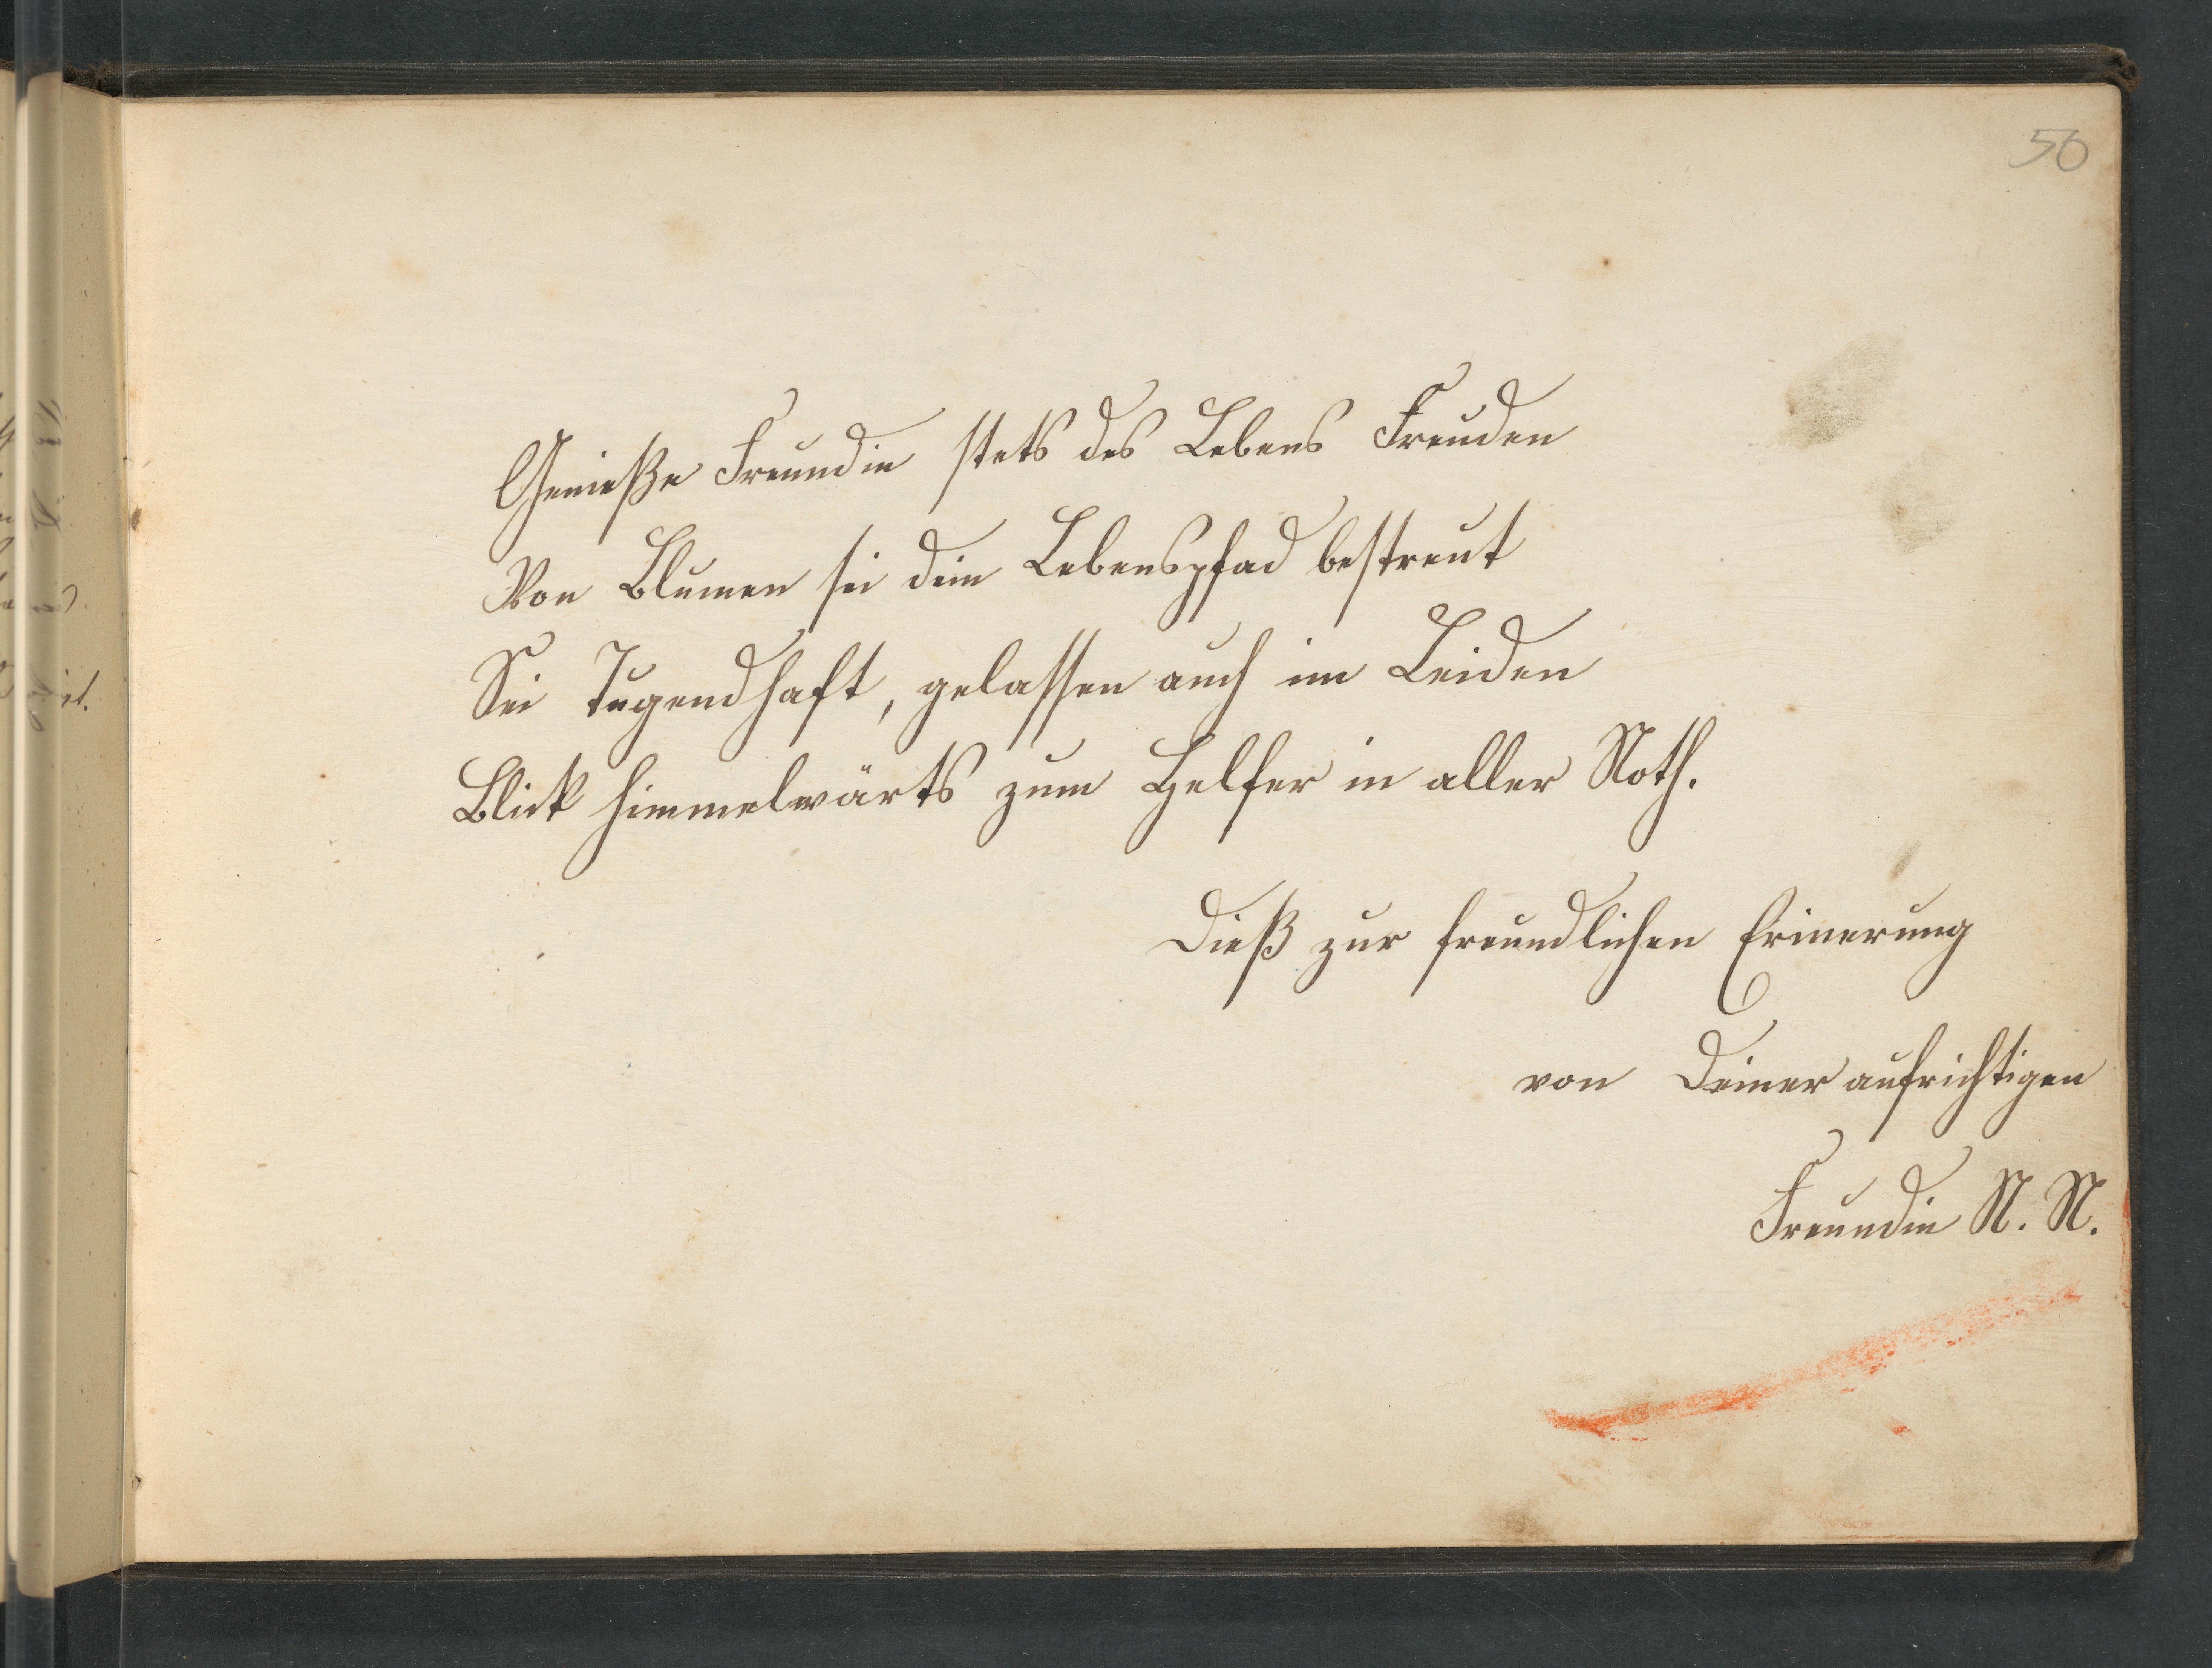 50
Genieße Freundin stets des Lebens Freuden
Von Blumen sei dein Lebenspfad bestreut
Sei Tugendhaft, gelassen auch im Leiden
Blick himmelwärts zum Helfer in aller Noth.
Dieß zur freundlichen Erinerung
von Deiner aufrichtigen
Freundin N. N.